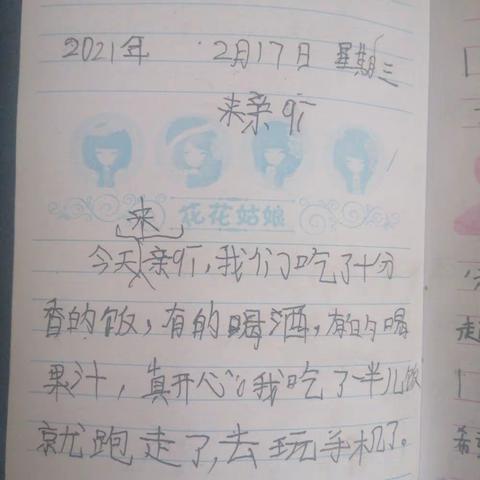 2021年 2月17日 星期三
来亲qī
花花姑娘
来
今天亲qī,我们吃了十分
香的饭,有的喝酒,有的喝
果汁,真开心。我吃了一半儿饭
就跑走了,去玩手机了。